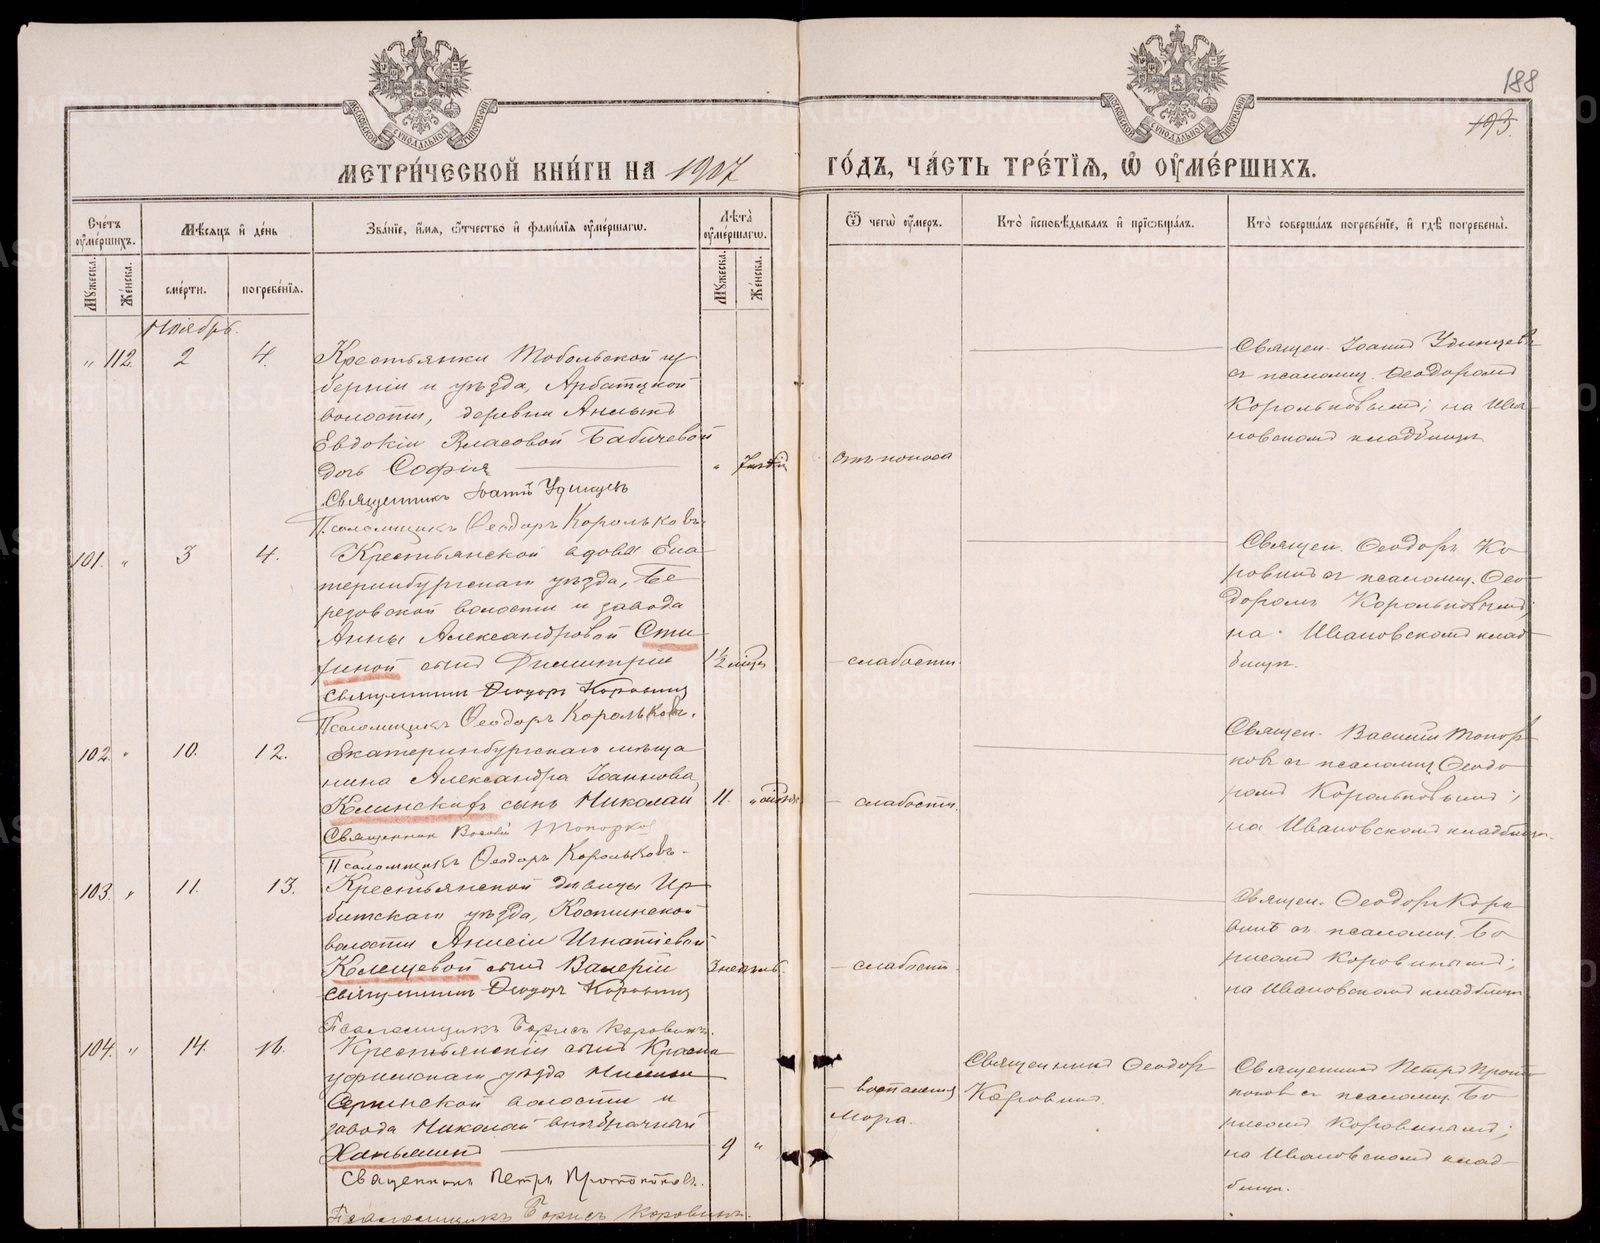 188
193.
МЕТРИ́ЧЕСКОЙ КНИ́ГИ НА 1907 ГО́ДЪ, ЧА́СТЬ ТРЕ́ТЇѦ, Ѿ ОУ҆МЕ́РШИХЪ.
Сче́тъ оу҆ме́ршихъ.
Мꙋ́жеска.
Же́нска.
Мѣ́сѧцъ и҆ де́нь
сме́рти.
погребе́нїѧ.
Зва́нїе, и҆́мѧ, ѻ҆́тчество и҆ фами́лїѧ оу҆ме́ршагѡ.
Лѣ́та оу҆ме́ршагѡ.
Мꙋ́жеска.
Же́нска.
Ѿ чегѡ̀ оу҆́меръ.
Кто̀ и҆сповѣ́дывалъ и҆ прїѡбща́лъ.
Кто̀ соверша́лъ погребе́нїе, и҆ гдѣ̀ погребены̀.
Ноябрь.
" 112. 2 4.
Крестьянки Тобольской гу
берніи и уѣзда, Арбатцкой
волости, деревни
Евдокіи Власовой Бабичевой
дочь Софія
Священникъ Іоаннъ Удинцевъ
Псаломщикъ Ѳеодоръ Корольковъ.
отъ поноса
Священ. Іоаннъ Удинцевъ
съ псаломщ. Ѳеодоромъ
Корольковымъ; на Ива
новскомъ кладбищѣ
101. " 3 4.
Крестьянской вдовы Ека
теринбургскаго уѣзда, Бе
резовской волости и завода
Анны Александровой Сти
финой сынъ Димитрій
1½ мѣс.
Священникъ Ѳеодоръ Коровинъ
Псаломщикъ Ѳеодоръ Корольковъ.
слабости.
Священ. Ѳеодоръ Ко
ровинъ съ псаломщ. Ѳео
доромъ Корольковымъ;
на Ивановскомъ клад
бищѣ.
102. " 10. 12.
Екатеринбургскаго мѣща
нина Александра Іоаннова
Клинскихъ сынъ Николай
11.
Священник Василій Топорков
Псаломщикъ Ѳеодоръ Корольковъ.
слабости.
Священ. Василій Топор
ковъ съ псаломщ. Ѳеодо
ромъ Корольковымъ;
на Ивановскомъ кладбищѣ.
103. " 11. 13.
Крестьянской дѣвицы Ир
битскаго уѣзда, Костинской
волости Анисіи Игнатіевой
Клещевой сынъ Валерій
3 недѣль.
Священникъ Ѳеодоръ Коровинъ
Псаломщикъ Борисъ Коровинъ.
слабости.
Священ. Ѳеодоръ Коро
винъ съ псаломщ. Бо
рисомъ Коровинымъ;
на Ивановскомъ кладбищѣ
104. " 14. 16.
Крестьянскій сынъ Красно
уфимскаго уѣзда Нижне
Сергинской волости и
завода Николай внѣбрачный
Ханьжинъ
9 "
Священникъ Петръ Протопоповъ.
Псаломщикъ Борисъ Коровинъ.
воспаленія
Священникъ Ѳеодоръ
Коровинъ.
Священникъ Петръ Прото
поповъ съ псаломщ. Бо
рисомъ Коровинымъ;
на Ивановскомъ клад
бищѣ.